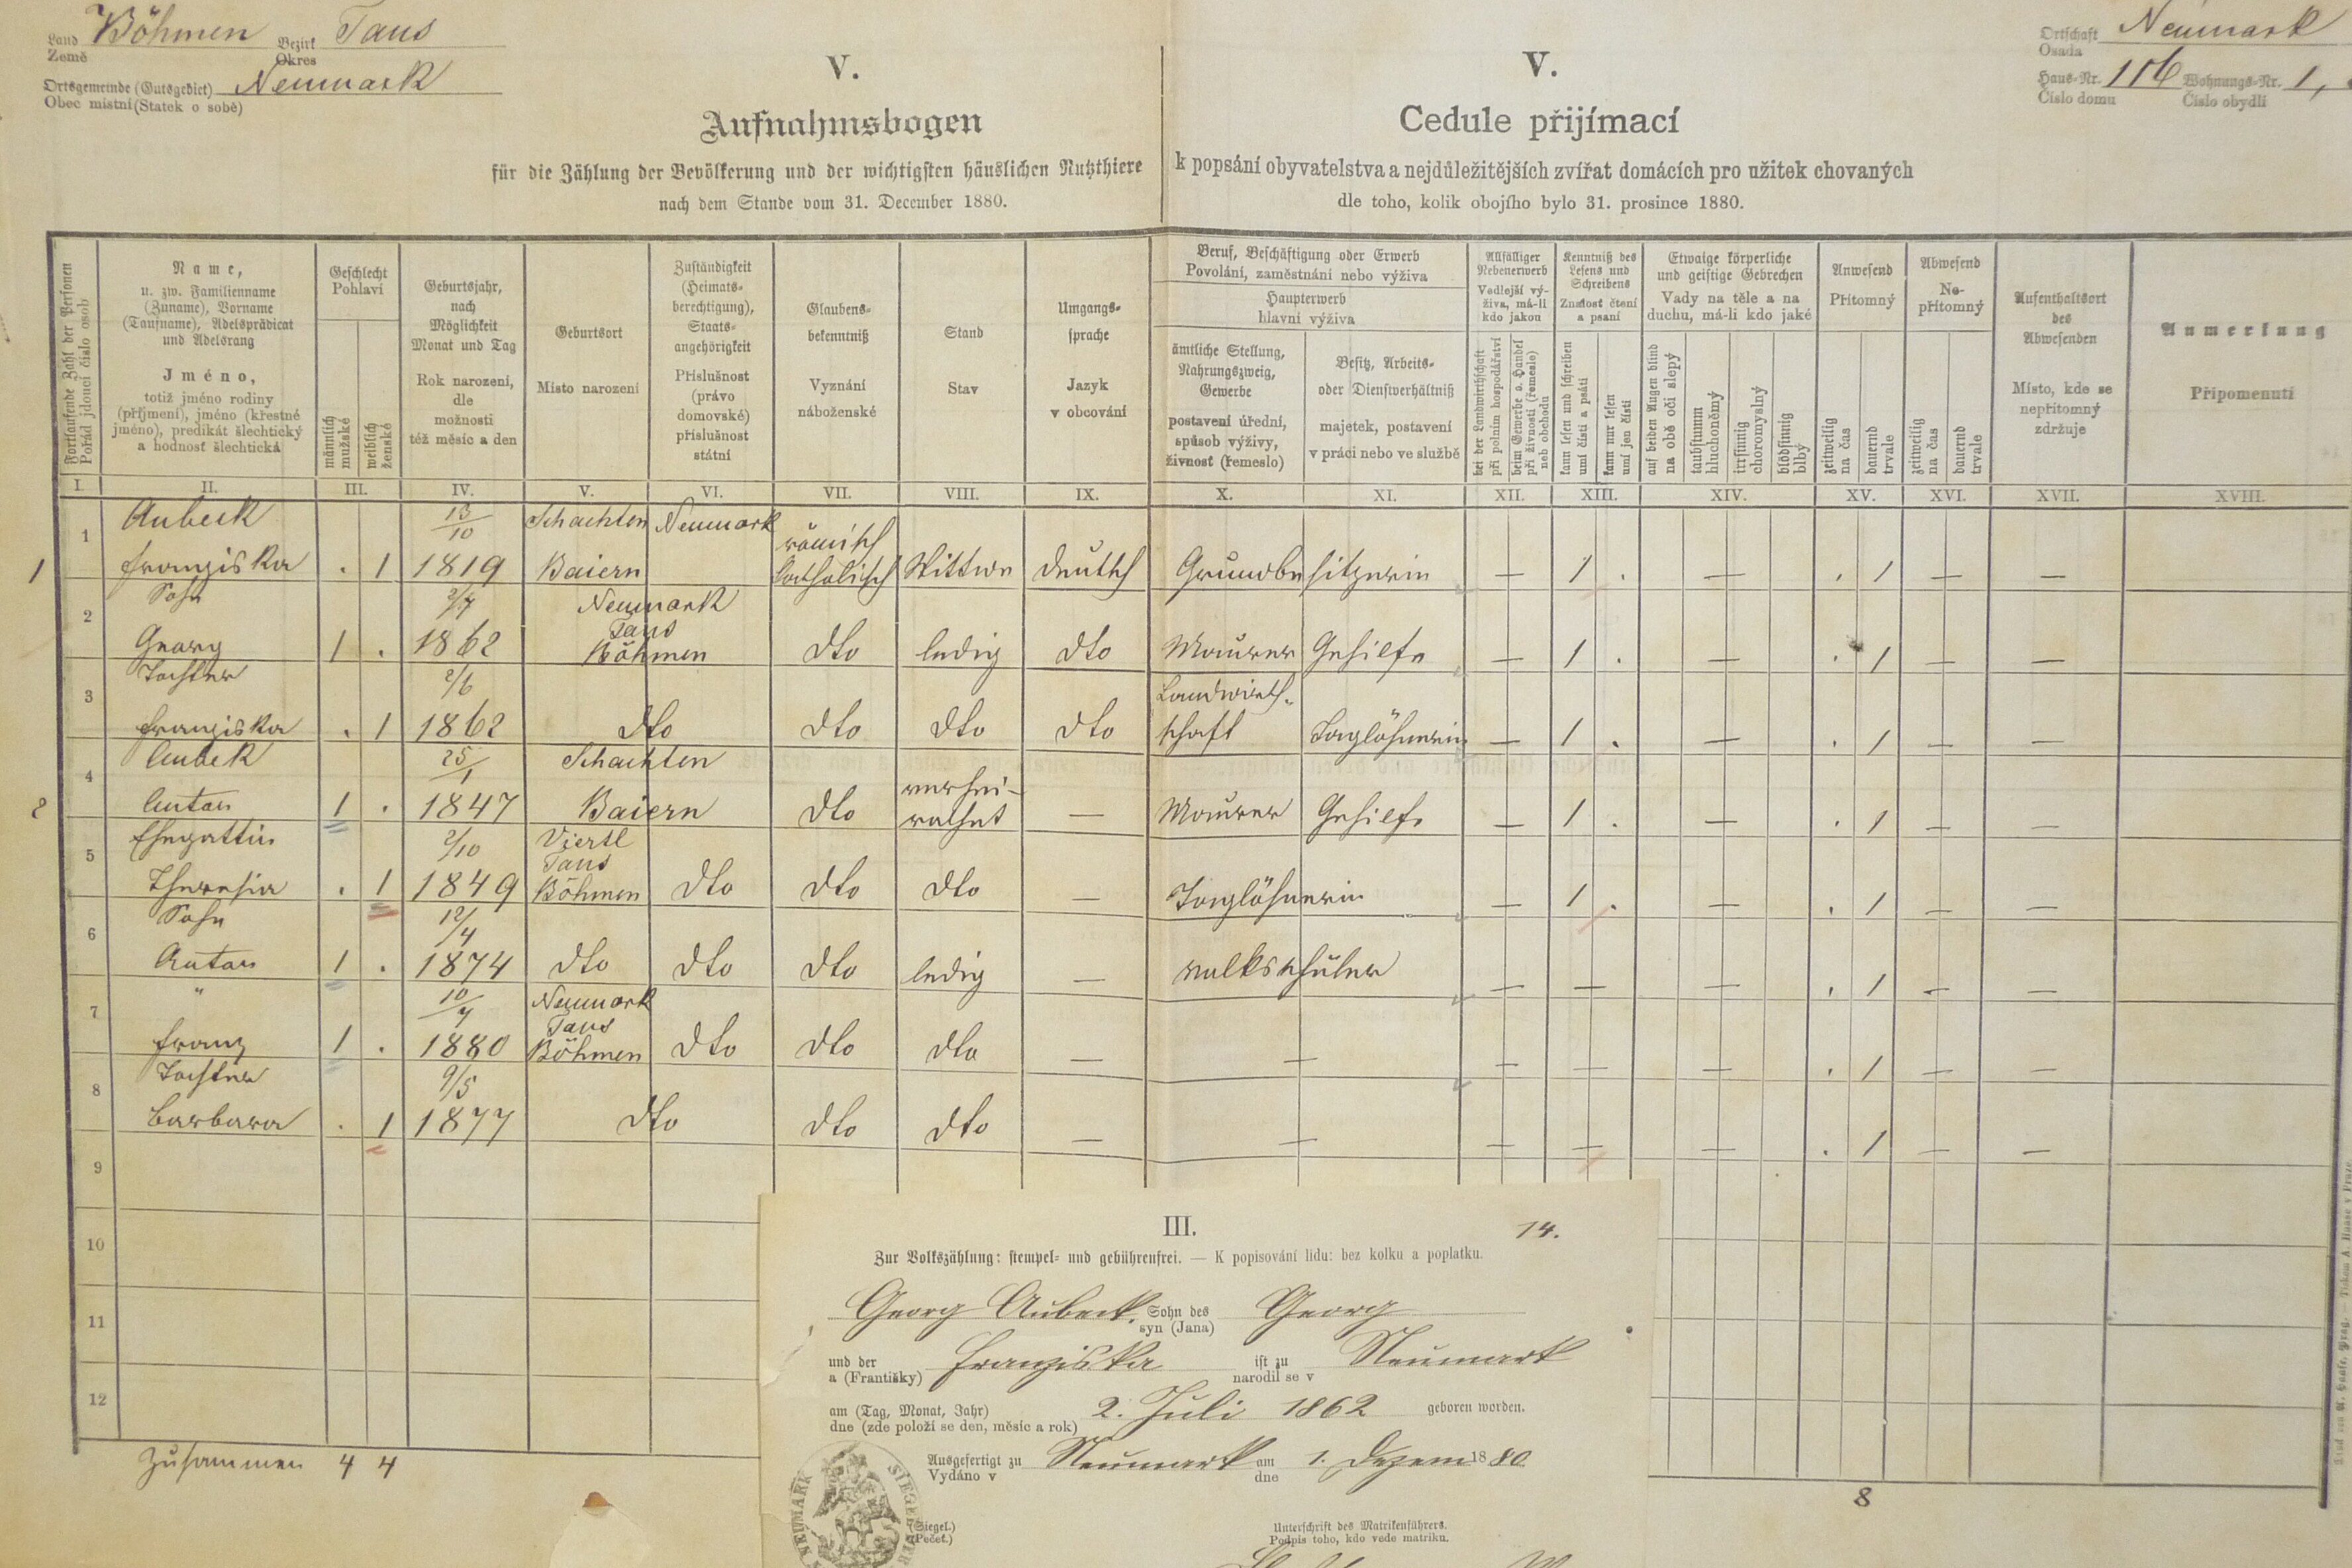 Land Böhmen Bezirk Taus
Země Okres
Ortsgemeinde (Gutsgebiet) Neumark
Obec místní (Statek o sobě)
Ortschaft Neumark
Osada
Haus-Nr. 116 Wohnungs-Nr. 1,
Číslo domu Číslo obydlí
V.
Aufnahmsbogen
für die Zählung der Bevölkerung und der wichtigsten häuslichen Nutzthiere
nach dem Stande vom 31. December 1880.
V.
Cedule přijímací
k popsání obyvatelstva a nejdůležitějších zvířat domácích pro užitek chovaných
dle toho, kolik obojího bylo 31. prosince 1880.
Fortlaufende Zahl der Personen
Pořád jdoucí číslo osob
Name,
u. zw. Familienname
(Zuname), Vorname
(Taufname), Adelsprädicat
und Adelsrang
Jméno,
totiž jméno rodiny
(příjmení), jméno (křestné
jméno), predikát šlechtický
a hodnosť šlechtická
Geschlecht
Pohlaví
männlich
mužské
weiblich
ženské
Geburtsjahr,
nach
Möglichkeit
Monat und Tag
Rok narození,
dle
možnosti
též měsíc a den
Geburtsort
Místo narození
Zuständigkeit
(Heimats-
berechtigung),
Staats-
angehörigkeit
Příslušnost
(právo
domovské)
příslušnost
státní
Glaubens-
bekenntniß
Vyznání
náboženské
Stand
Stav
Umgangs-
sprache
Jazyk
v obcování
Beruf, Beschäftigung oder Erwerb
Povolání, zaměstnání nebo výživa
Haupterwerb
hlavní výživa
ämtliche Stellung,
Nahrungszweig,
Gewerbe
postavení úřední,
spůsob výživy,
živnosť (řemeslo)
Besitz, Arbeits-
oder Dienstverhältniß
majetek, postavení
v práci nebo ve službě
Allfälliger
Nebenerwerb
Vedlejší vý-
živa, má-li
kdo jakou
bei der Landwirthschaft
při polním hospodářství
beim Gewerbe o. Handel
při živnosti (řemesle)
neb obchodu
Kenntniß des
Lesens und
Schreibens
Znalost čtení
a psaní
kann lesen und schreiben
umí čísti a psáti
kann nur lesen
umí jen čísti
Etwaige körperliche
und geistige Gebrechen
Vady na těle a na
duchu, má-li kdo jaké
auf beiden Augen blind
na obě oči slepý
taubstumm
hluchoněmý
irrsinnig
choromyslný
blödsinnig
blbý
Anwesend
Přítomný
zeitweilig
na čas
dauernd
trvale
Abwesend
Ne-
přítomný
zeitweilig
na čas
dauernd
trvale
Aufenthaltsort
des
Abwesenden
Místo, kde se
nepřítomný
zdržuje
Anmerkung
Připomenutí
I. II. III. IV. V. VI. VII. VIII. IX. X. XI. XII. XIII. XIV. XV. XVI. XVII. XVIII.
Aubeck 13/10 Schachten Neumark römisch
1 1 Franziska . 1 1819 Baiern katholisch Wittwe deutsch Grundbesitzerin — 1 . — . 1 — —
Sohn 2/7 Neumark
Taus
2 Georg 1 . 1862 Böhmen dto ledig dto Maurer Gehilfe — 1 . — . 1 — —
Tochter 2/6 Landwirth-
3 Franziska . 1 1862 dto dto dto dto schaft Taglöhnerin — 1 . — . 1 — —
Aubek 25/1 Schachten verhei-
2 4 Anton 1 . 1847 Baiern dto rathet — Maurer Gehilfe — 1 . — . 1 — —
Ehegattin 2/10 Viertl
Taus
5 Theresia . 1 1849 Böhmen dto dto dto — Taglöhnerin — 1 . — . 1 — —
Sohn 12/4
6 Anton 1 . 1874 dto dto dto ledig — volksschüler — — — . 1 — —
" 10/7 Neumark
Taus
7 Franz 1 . 1880 Böhmen dto dto dto — — — — — . 1 — —
Tochter 9/5
8 Barbara . 1 1877 dto dto dto — — — — — . 1 — —
9
10
11
12
Zusammen 4 4
8
III.
14.
Zur Volkszählung: stempel- und gebührenfrei. — K popisování lidu: bez kolku a poplatku.
Georg Aubeck. Sohn des Georg
syn (Jana)
und der Franziska ist zu Neumark
a (Františky) narodil se v
am (Tag, Monat, Jahr) 2. Juli 1862 geboren worden.
dne (zde položí se den, měsíc a rok)
Ausgefertigt zu Neumark am 1. Dezem 1880
Vydáno v dne
NEUMARK SIEGEL DER
(Siegel.)
(Pečeť.)
Unterschrift des Matrikenführers.
Podpis toho, kdo vede matriku.